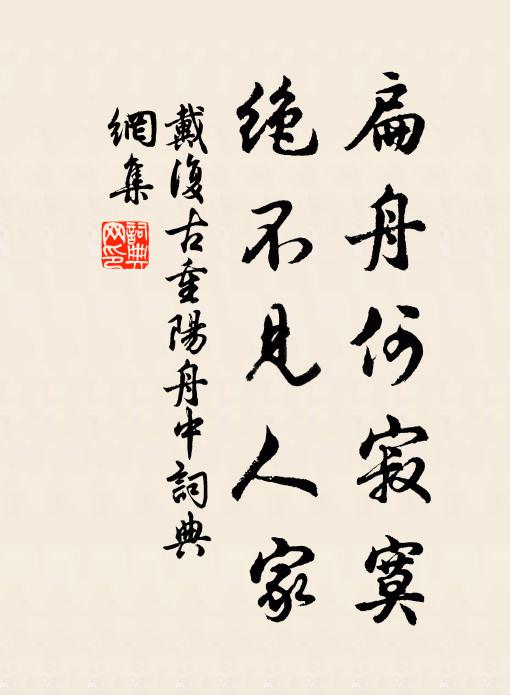 扁舟何寂寞
絶不見人家
戴復古重陽舟中詞典
網集
詞典网印